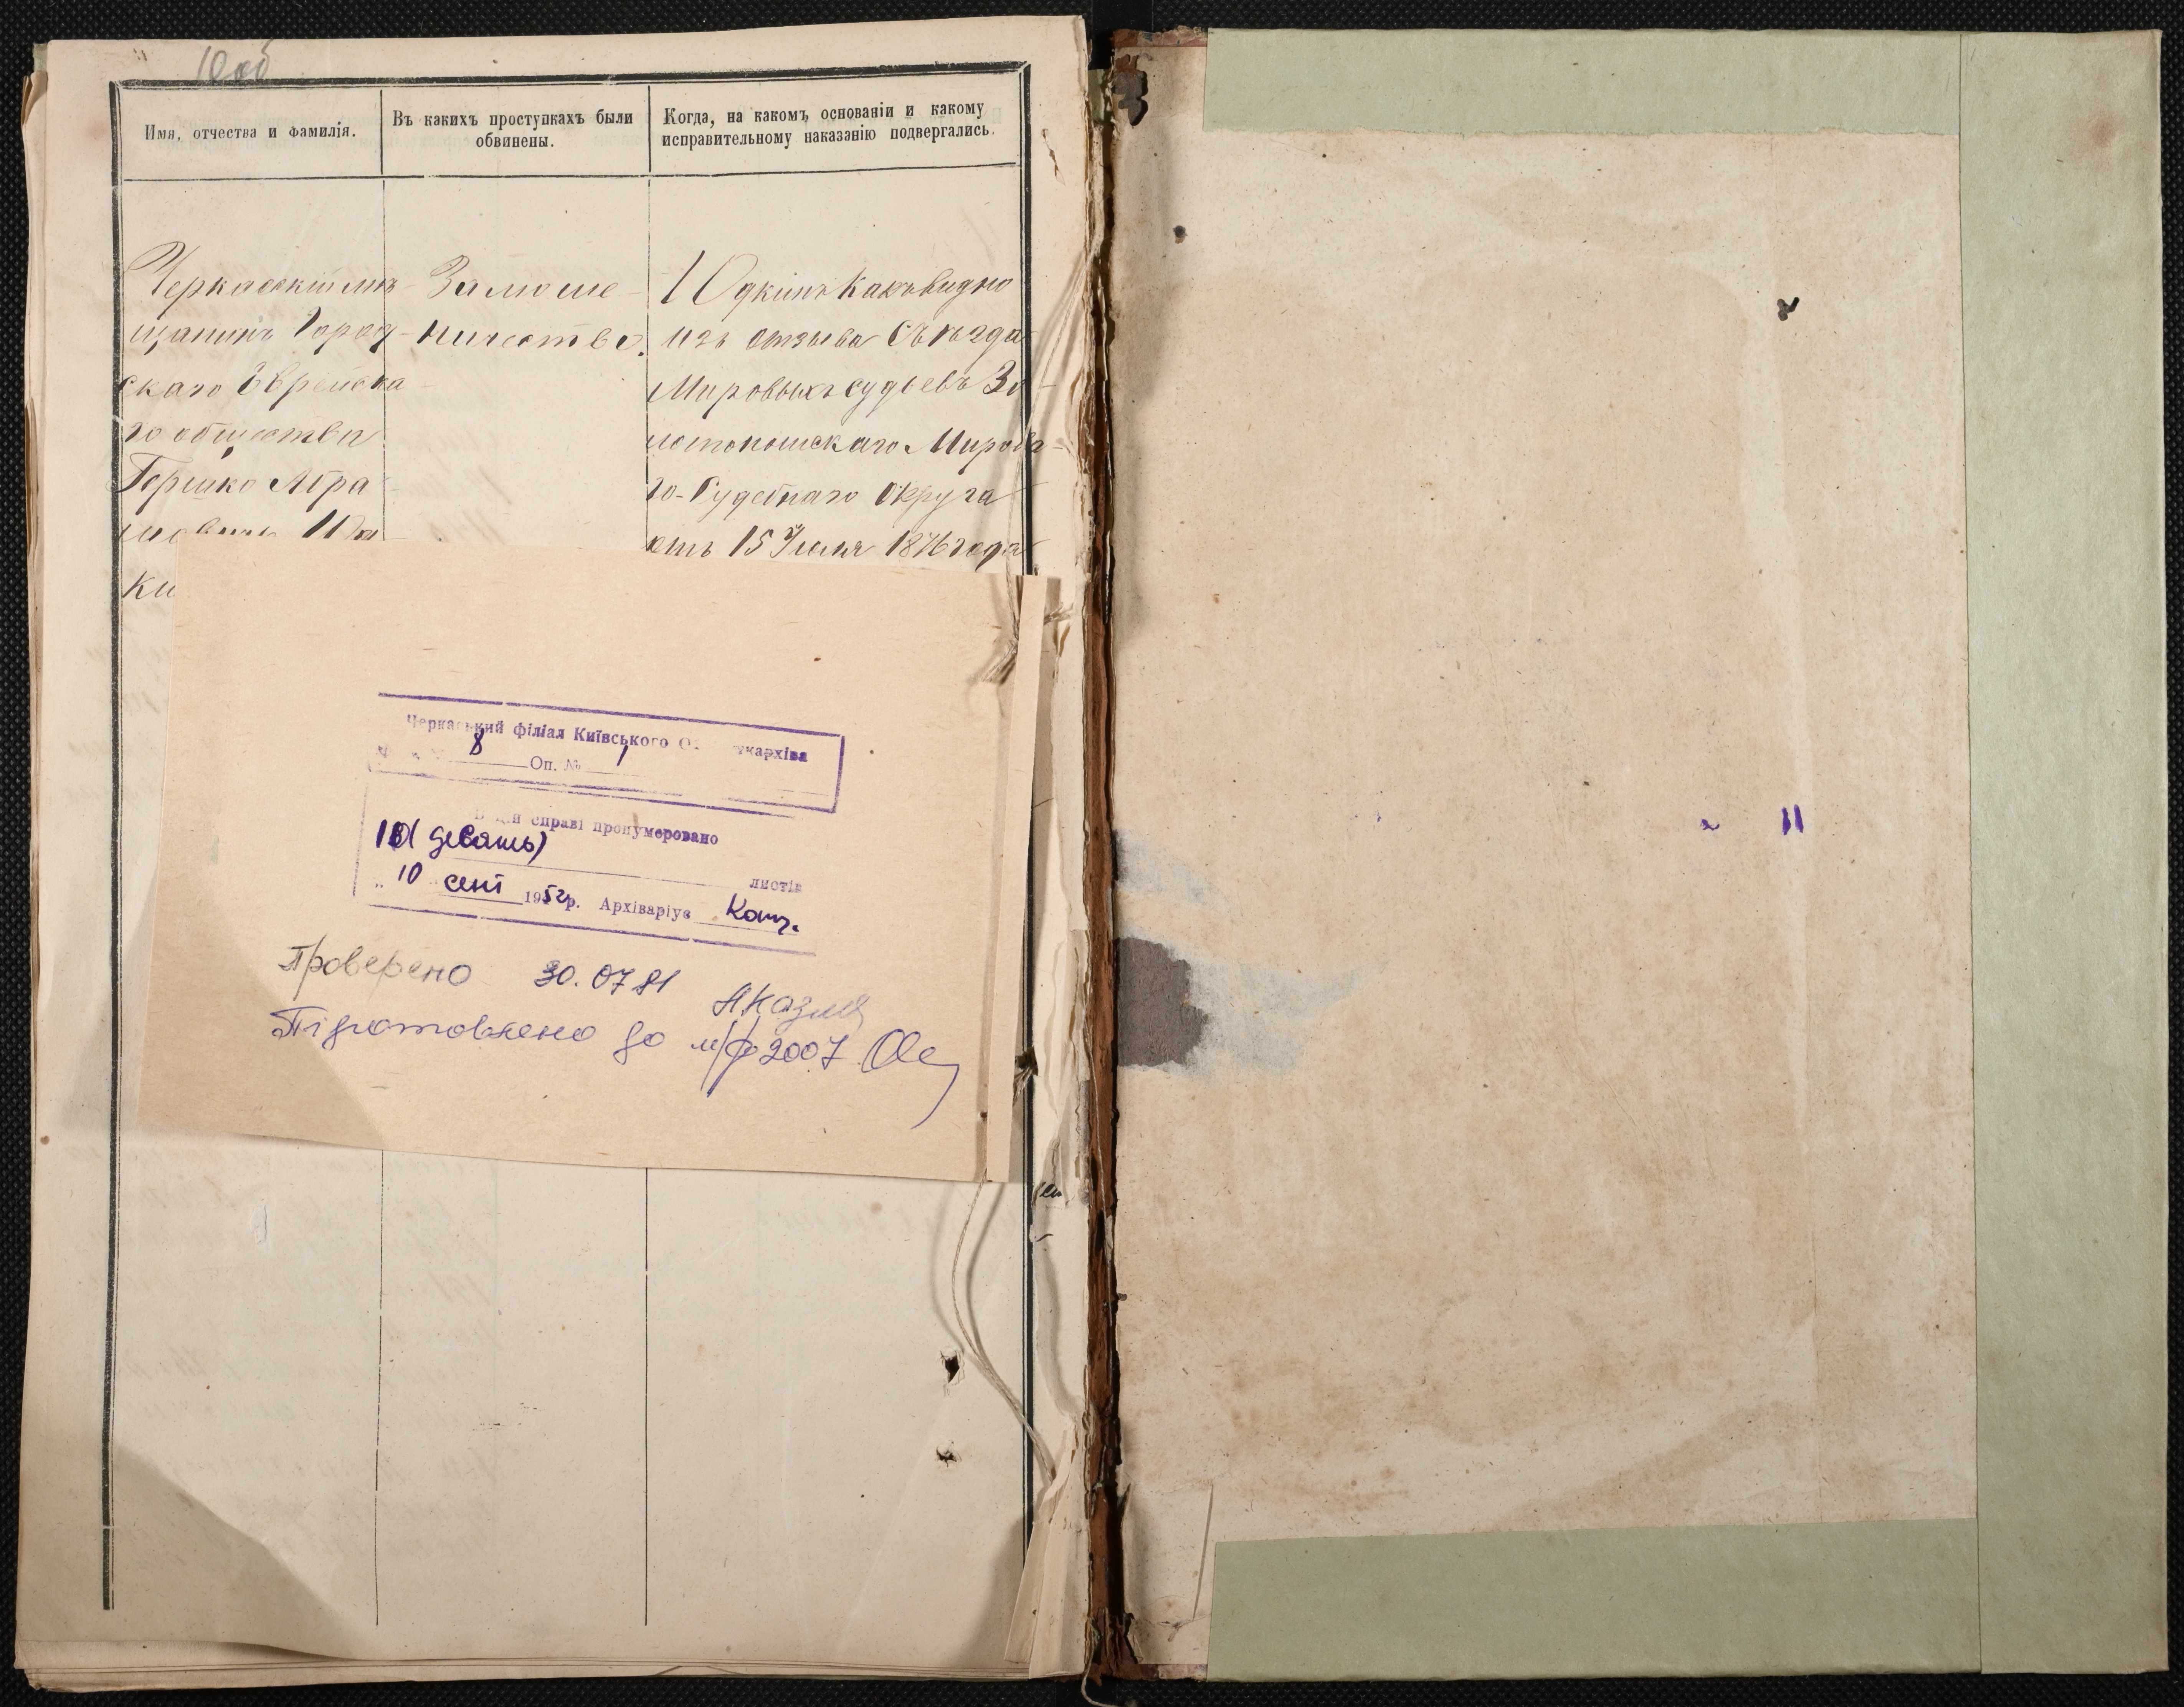 10об
Имя, отчества и фамилія.
Въ каких​ъ проступкахъ были
обвинены.
Когда, на какомъ основаніи и какому
исправительному наказанію подвергались.
Черкаскій мѣ-
щанинъ Город-
скаго Еврейска-
го общества
Гершко Абра-
мовичь Юд-
ки
За моше-
ничество.
Юдкинъ какъ видно
изъ отзыва Съѣзда
Мировыхъ судьевъ Зо-
лотоношскаго Мирова-
го-Судебнаго Округа
отъ 15 Июля 1876 года
Черкаський філіал Київського
8 Оп. № 1
В цій справі пронумеровано
10 (десять)
листів
„ 10 " сент 1952р. Архіваріус
Проверено 30.07 81
Підготовлено до м/ф 2007